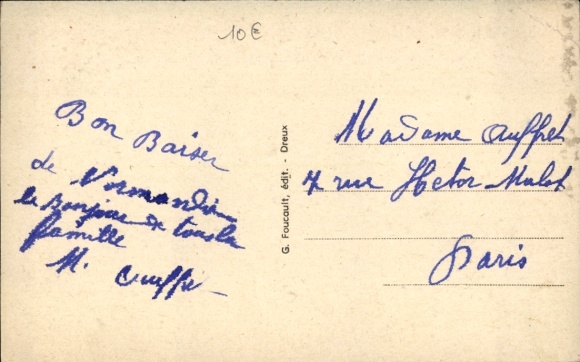 10€
Bon Baiser
de Normandie
le Bonjour de toute la
famille
M. Auffret
G. Foucault, édit. - Dreux
Madame Auffret
7 rue Hector Malot
Paris